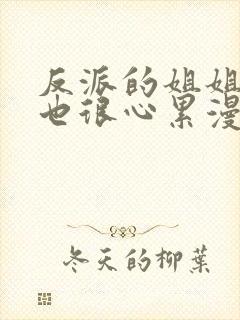 反派的姐姐
也很心累漫
冬天的柳葉